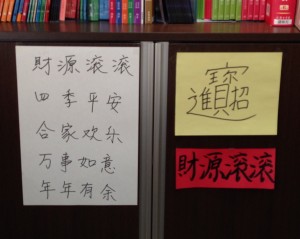 財源滚滚
四季平安
合家欢乐
万事如意
年年有余
招財進寶
財源滚滚